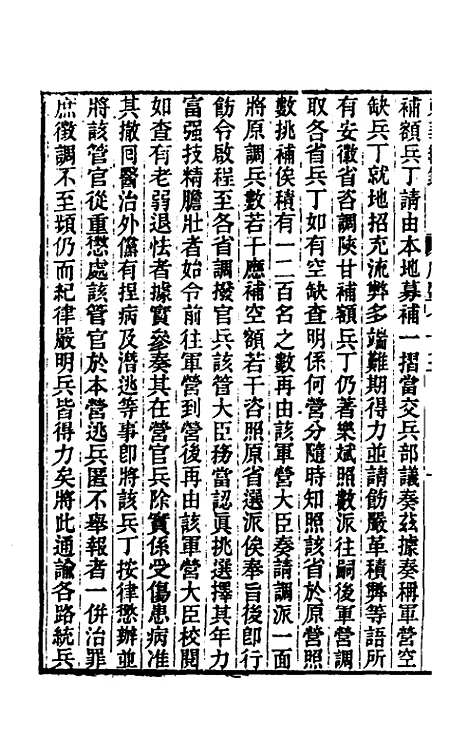 補額兵丁請由本地募補一摺當交兵部議奏茲據奏稱軍營空
缺兵丁就地招充流弊多端難期得力並請飭嚴革積弊等語所
有安徽省咨調陝甘補額兵丁仍著樂斌照數派往嗣後軍營調
取各省兵丁如有空缺查明係何營分隨時知照該省於原營照
數挑補俟積有一二百名之數再由該軍營大臣奏請調派一面
將原調兵數若干應補空額若干咨照原省選派俟奉旨後卽行
飭令啟程至各省調撥官兵該管大臣務當認眞挑選擇其年力
富强技精膽壯者始令前往軍營到營後再由該軍營大臣校閱
如查有老弱退怯者據實參奏其在營官兵除實係受傷患病准
其撤囘醫治外儻有捏病及潛逃等事卽將該兵丁按律懲辦並
將該管官從重懲處該管官於本營逃兵匿不舉報者一併治罪
庶徵調不至煩仍而紀律嚴明兵皆得力矣將此通諭各路統兵